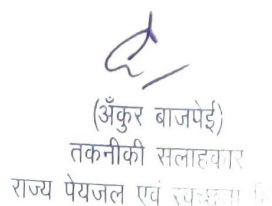 (अँकुर बाजपेई)
तकनीकी सलाहकार
राज्य पेयजल एवं स्वच्छता